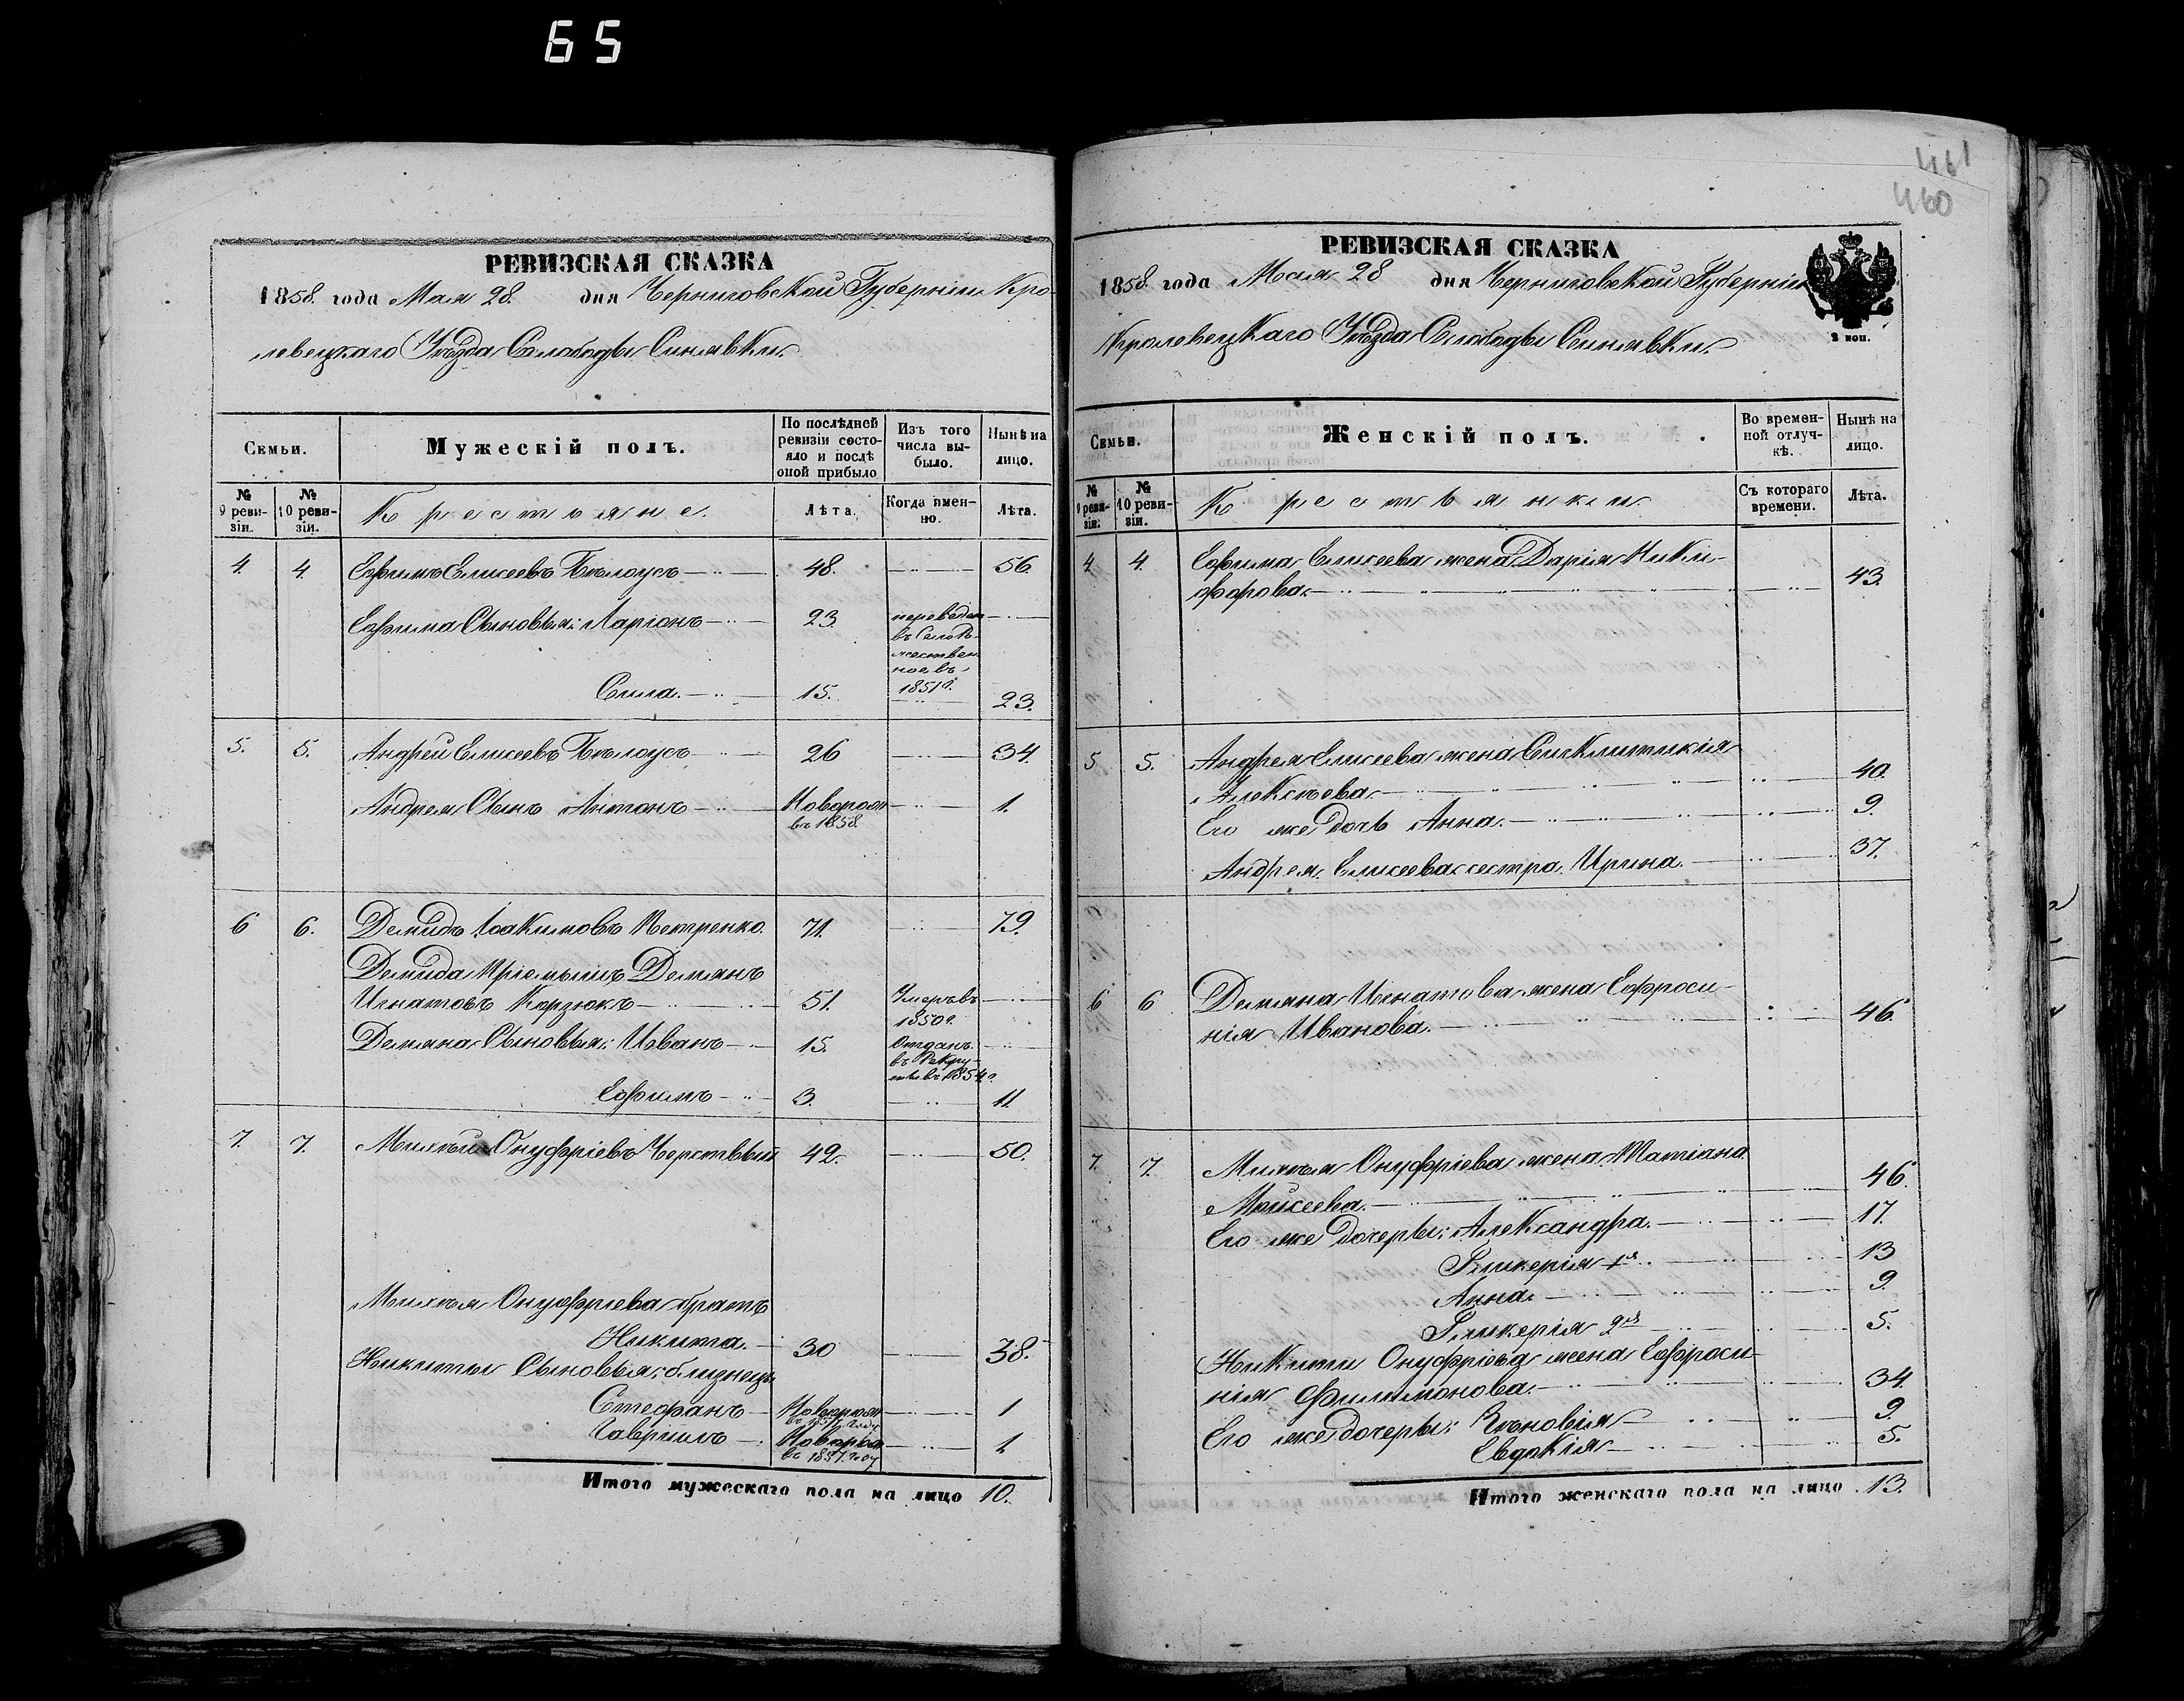 65
461
460
РЕВИЗСКАЯ СКАЗКА
1858. года Мая 28. дня Черниговской Губерніи Кро-
левецкаго Уѣзда Слободы Синявки.
Семьи.
Мужескій полъ.
По послѣдней ревизіи состояло и послѣ оной прибыло
Изъ того числа выбыло.
Нынѣ на лицо.
№ 9 ревизіи.
№ 10 ревизіи.
Крестьяне.
Лѣта.
Когда имен-но.
Лѣта.
4. 4. Ефимъ Елисеевъ Бѣлоусъ 48. 56.
Ефима Сыновья: Ларіонъ 23. переведен въ Село 
жествен
ное въ
1851 г.
Сила. 15. 23.
5. 5. Андрей Елисеевъ Бѣлоусъ 26 34.
Андрея Сынъ Антонъ Новорож 1.
въ 1858.
6 6. Демидъ Іоакимовъ Петренко. 71. 79.
Демида Пріемышъ Демянъ
Игнатовъ Корзюкъ 51. Умеръ въ
1850 г.
Демяна Сыновья: Иванъ 15. Отданъ
въ Рекру-
ты въ 1854 г.
Ефимъ 3. 11.
7. 7. Михѣй Онуфріевъ Черствый 42. 50.
Михѣя Онуфріева братъ
Никита. 30 38.
Никиты Сыновья, близнецы
Стефанъ Новорож 1
Гавриилъ Новорож 1
въ 1857 году
Итого мужескаго пола на лицо 10.
РЕВИЗСКАЯ СКАЗКА
1858. года Мая 28 дня Черниговской Губерніи
Кролевецкаго Уѣзда Слободы Синявки.
2 коп.
Семьи.
Женскій полъ.
Во времен-ной отлуч-кѣ.
Нынѣ на лицо.
№ 9 реви-зіи.
№ 10 реви-зіи.
Крестьянки
Съ котораго времени.
Лѣта.
4. 4. Ефима Елисеева жена Дарія Ники-
форова. 43.
5 5. Андрея Елисеева жена Синклитикія
Алексѣева. 40.
Его же дочь Анна. 9.
Андрея Елисеева сестра Ирина. 37.
6 6 Демяна Игнатова жена Ефроси-
нія Иванова. 46.
7. 7. Михѣя Онуфріева жена Татіана
Мойсеева. 46.
Его же дочеры: Александра. 17.
Гликерія 1я 13
Анна. 9.
Гликерія 2я 5.
Никиты Онуфріева жена Ефроси-
нія Филимонова. 34.
Его же дочеры: Зѣновія 9.
Евдокія 5.
Итого женскаго пола на лицо 13.